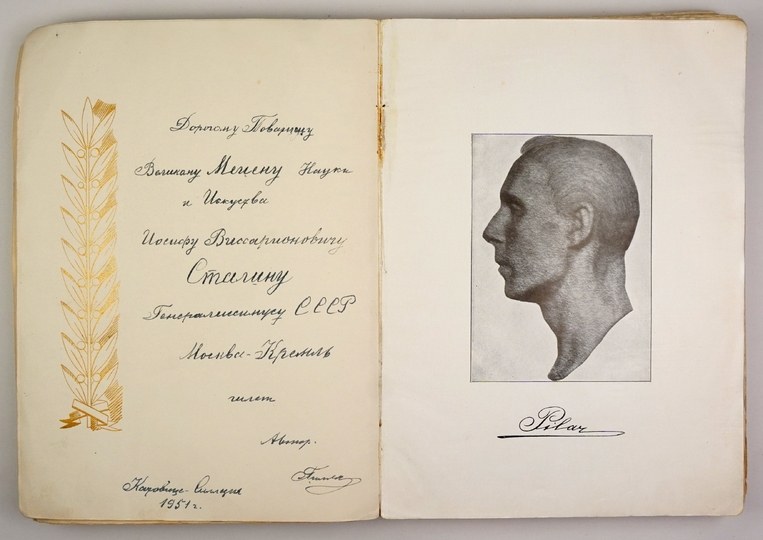 Дорогому Товарищу
Великому Мецену Науки
и Искуства
Иосифу Виссарионовичу
Сталину
Генералиссимусу СССР
Москва-Кремль
Автор.
1951 г.
Pilar